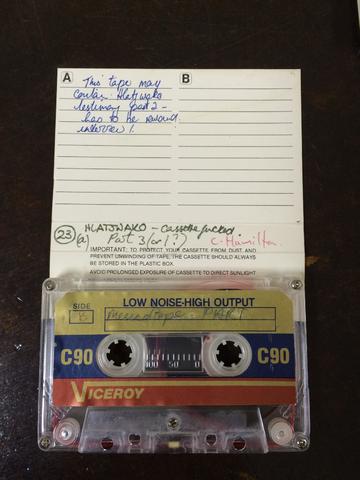 A
B
This tape may
contain Hlatjwako
testimony part 2 -
has to be
interview 1.
23
(a)
HLATJWAKO - Cassette fucked
Part 3 (or 1?)
C. Hamilton.
IMPORTANT: TO PROTECT YOUR CASSETTE FROM DUST, AND
PREVENT UNWINDING OF TAPE, THE CASSETTE SHOULD ALWAYS
BE STORED IN THE PLASTIC BOX.
AVOID PROLONGED EXPOSURE OF CASSETTE TO DIRECT SUNLIGHT
SIDE
LOW NOISE-HIGH OUTPUT
PART 1
C90
100 50 0
C90
VICEROY